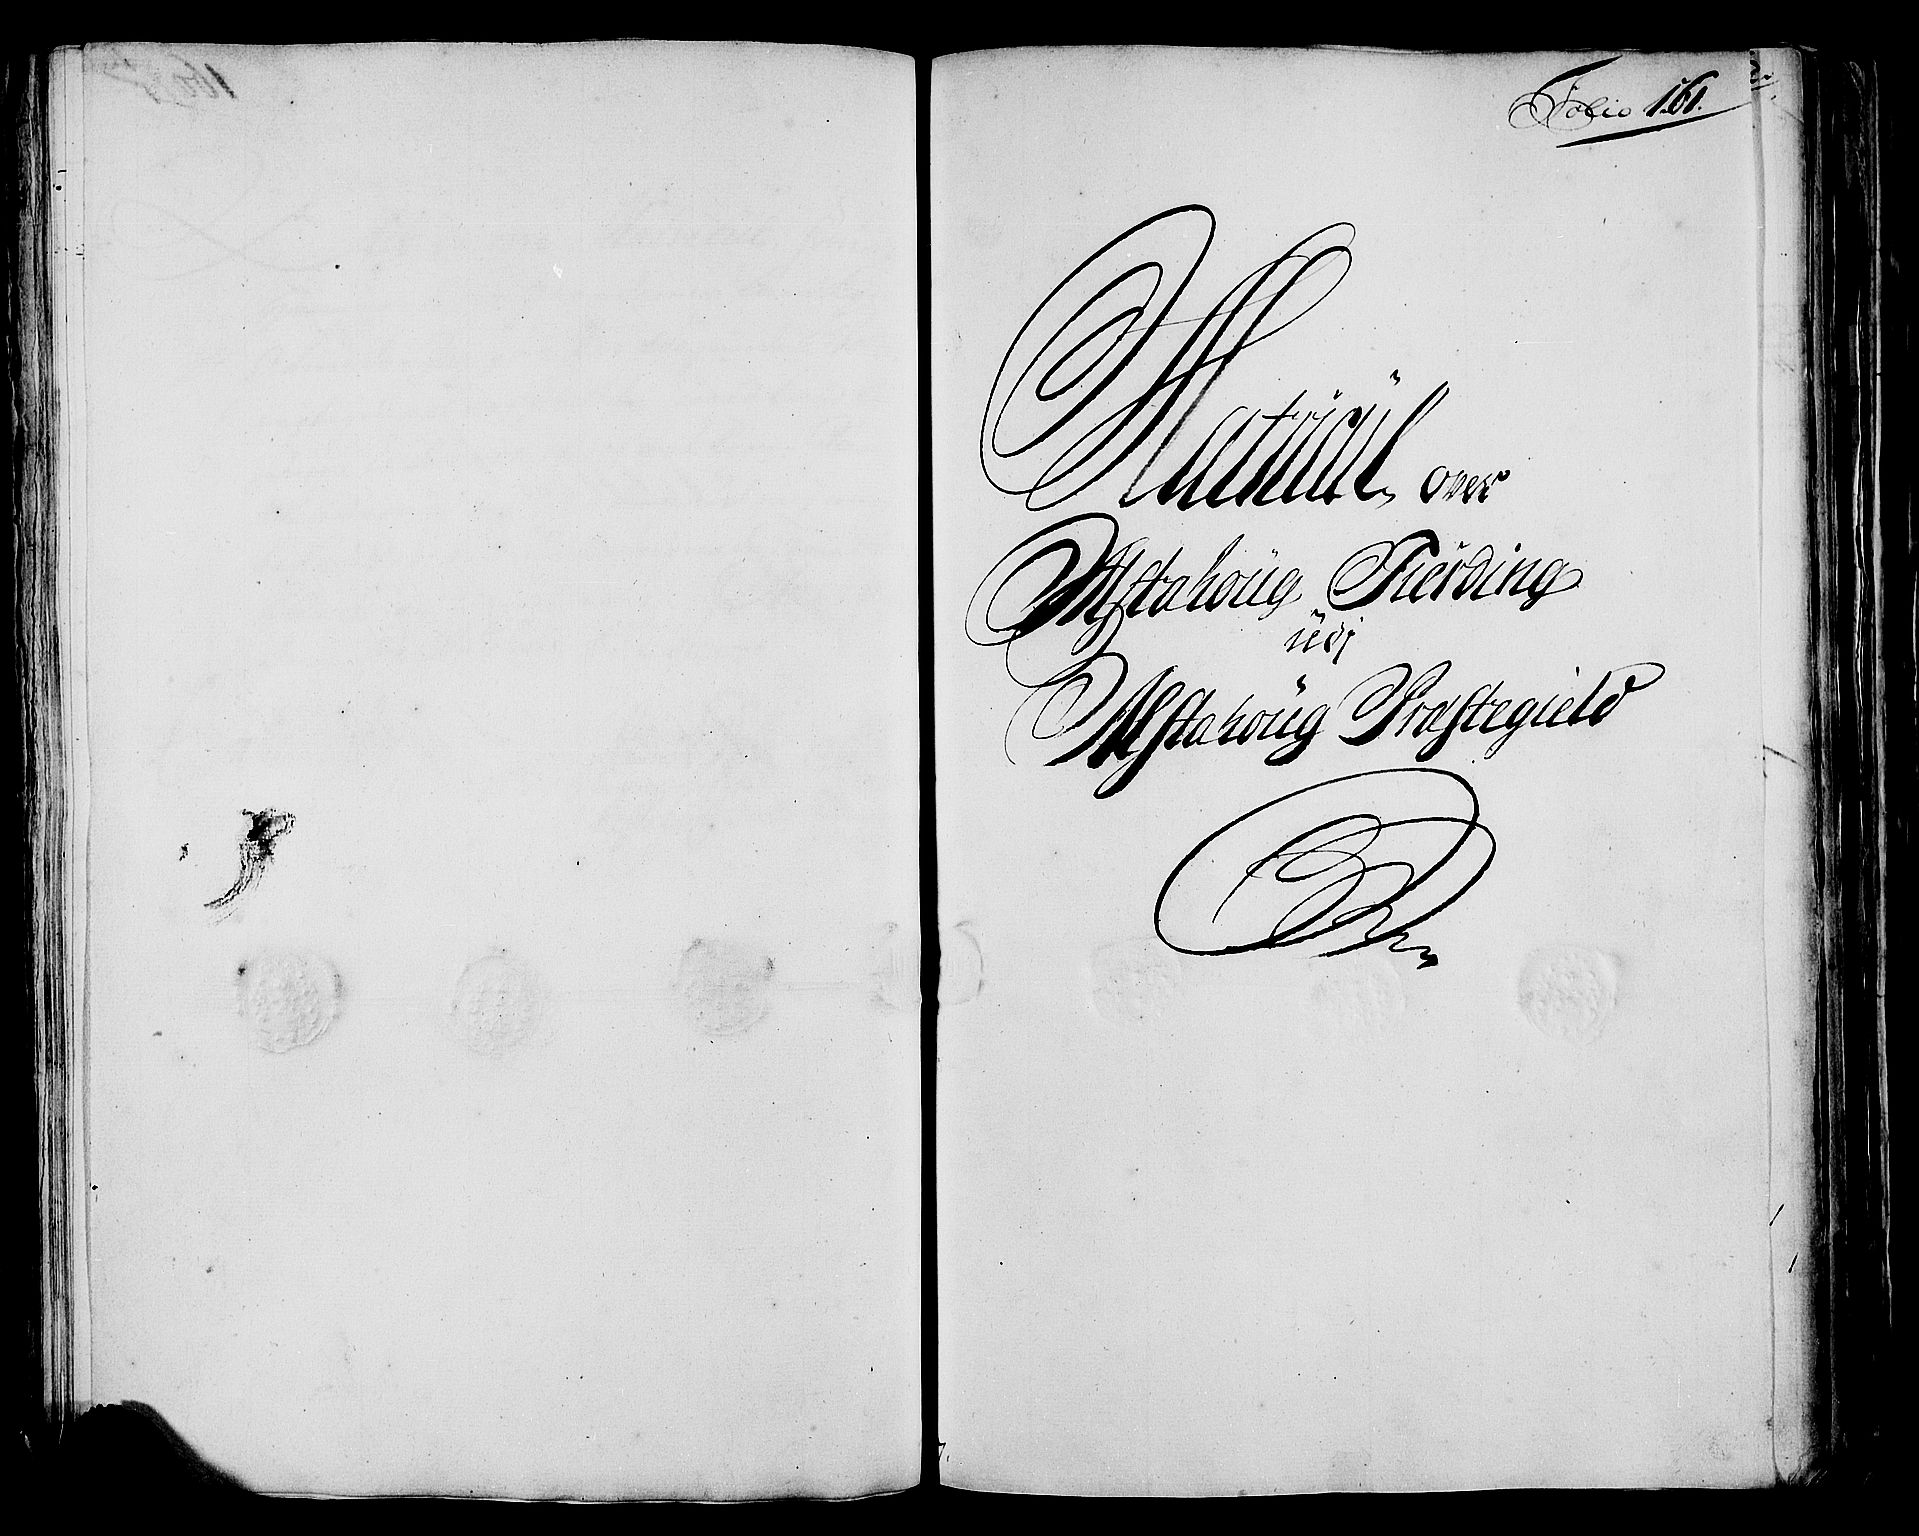 Folio 161.
Matricul over
Alstahoug Fierding
udj
Alstahoug Præstegield